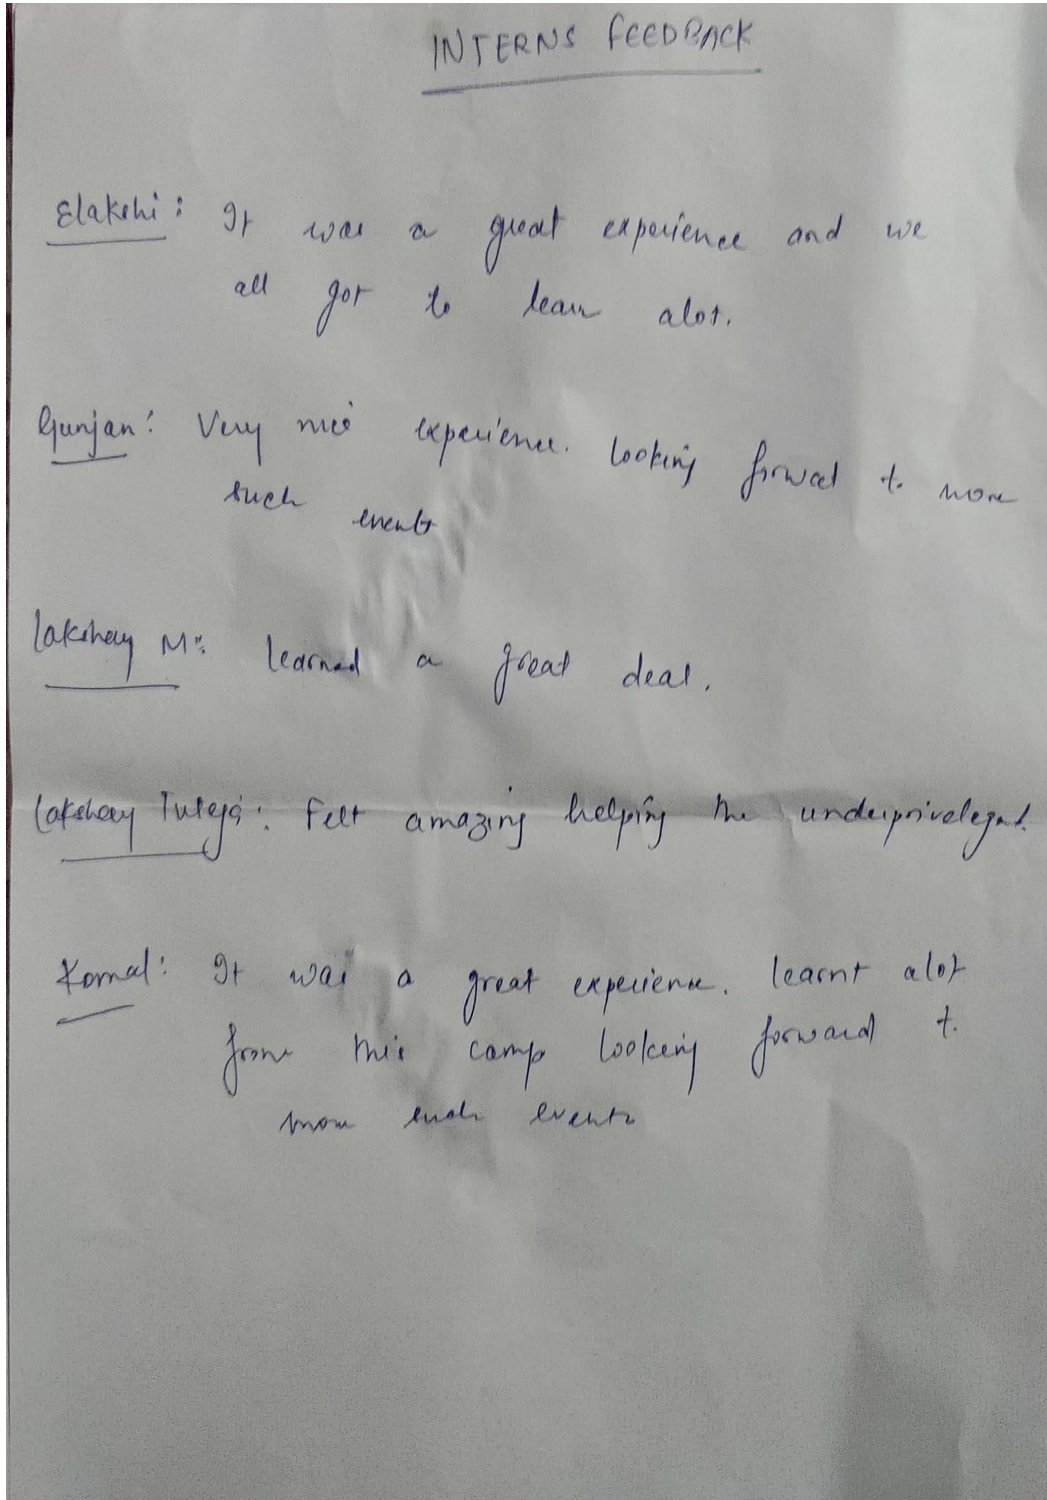 INTERNS FEEDBACK
Elakshi: It was a great experience and we
all got to learn alot.
Gunjan: Very nice experience. Looking forward to more
such events
Lakshay M: Learned a great deal.
Lakshay Tuteja: Felt amazing helping the underpriveleged.
Komal: It was a great experience. Learnt alot
from this camp looking forward to
more such events